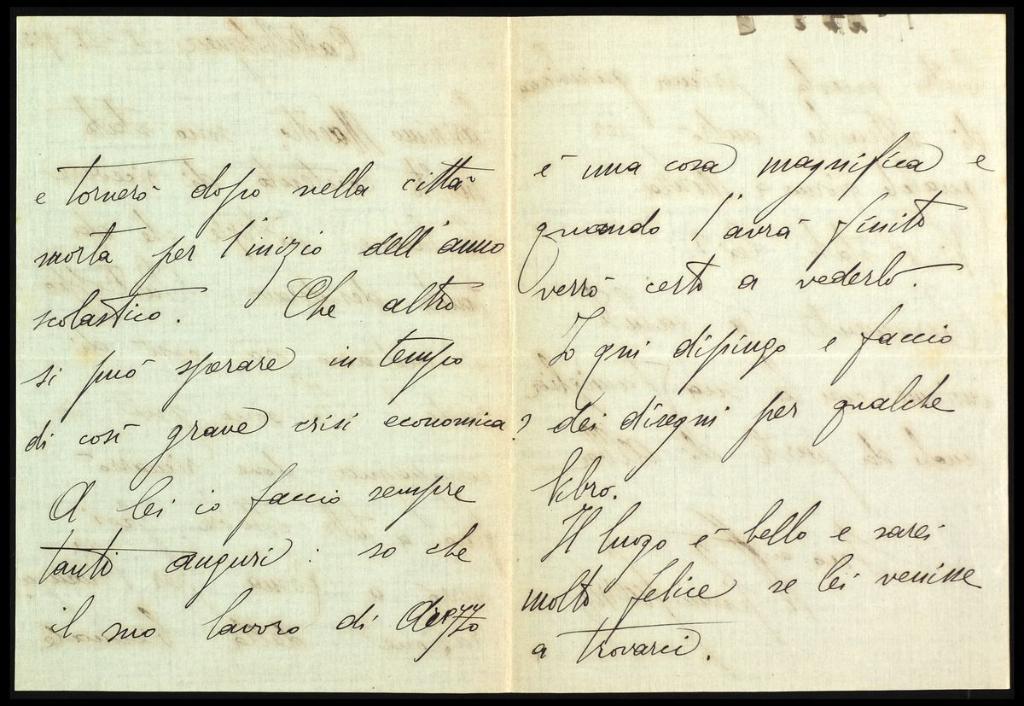 e tornerò dopo nella città
morta per l'inizio dell'anno
scolastico. Che altro
si può sperare in tempo
di così grave crisi economica?
A lei io faccio sempre
tanti auguri: so che
il suo lavoro di Arezzo
è una cosa magnifica e
quando l'avrà finito
verrò certo a vederlo.
Io qui dipingo e faccio
dei disegni per qualche
libro.
Il luogo è bello e sarei
molto felice se lei venisse
a trovarci.